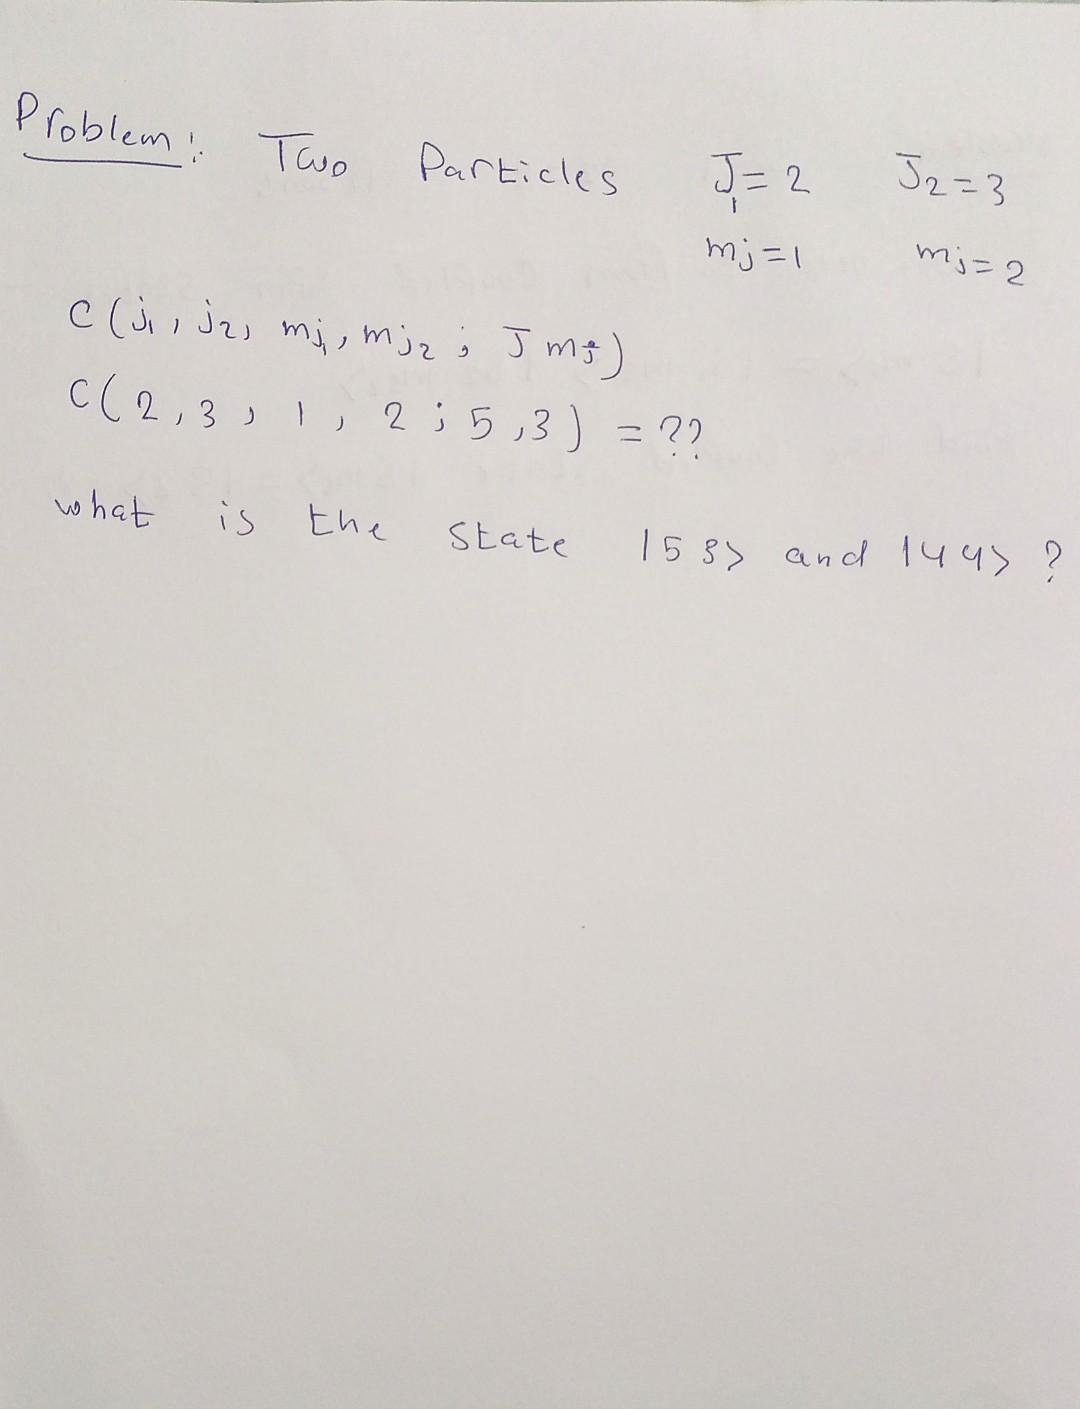 Problem: Two Particles J₁ = 2 J₂ = 3
mj = 1 mj = 2
C (j₁, j₂, mj₁, mj₂ ; J mj)
C( 2, 3, 1, 2 ; 5, 3) = ??
what is the state |5 3> and |4 4> ?